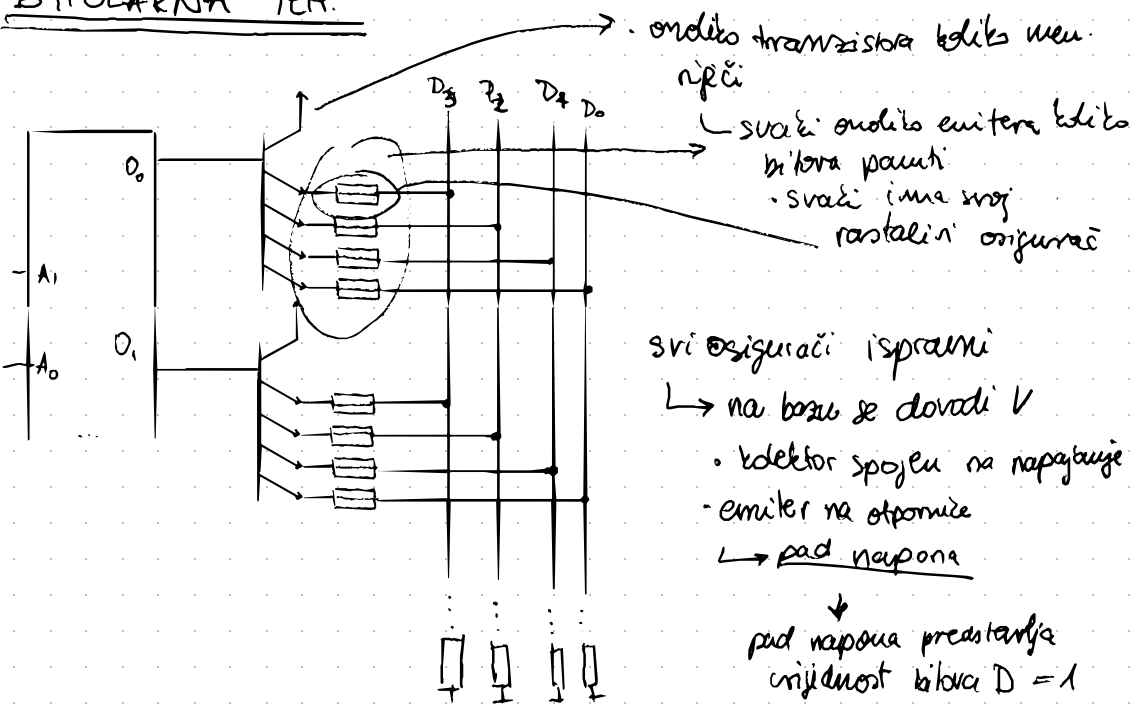 BIPOLARNA TEH.
· onoliko tranzistora koliko mem.
riječi
svaki onoliko emitera koliko
bitova pamti
· svaki ima svoj
rastalivi osigurač
D3 D2 D1 D0
O0
A1
O1
A0
...
svi osigurači ispravni
na bazu se dovodi V
· kolektor spojen na napajanje
· emiter na otpornike
pad napona
pad napona predstavlja
vrijednost bitova D = 1